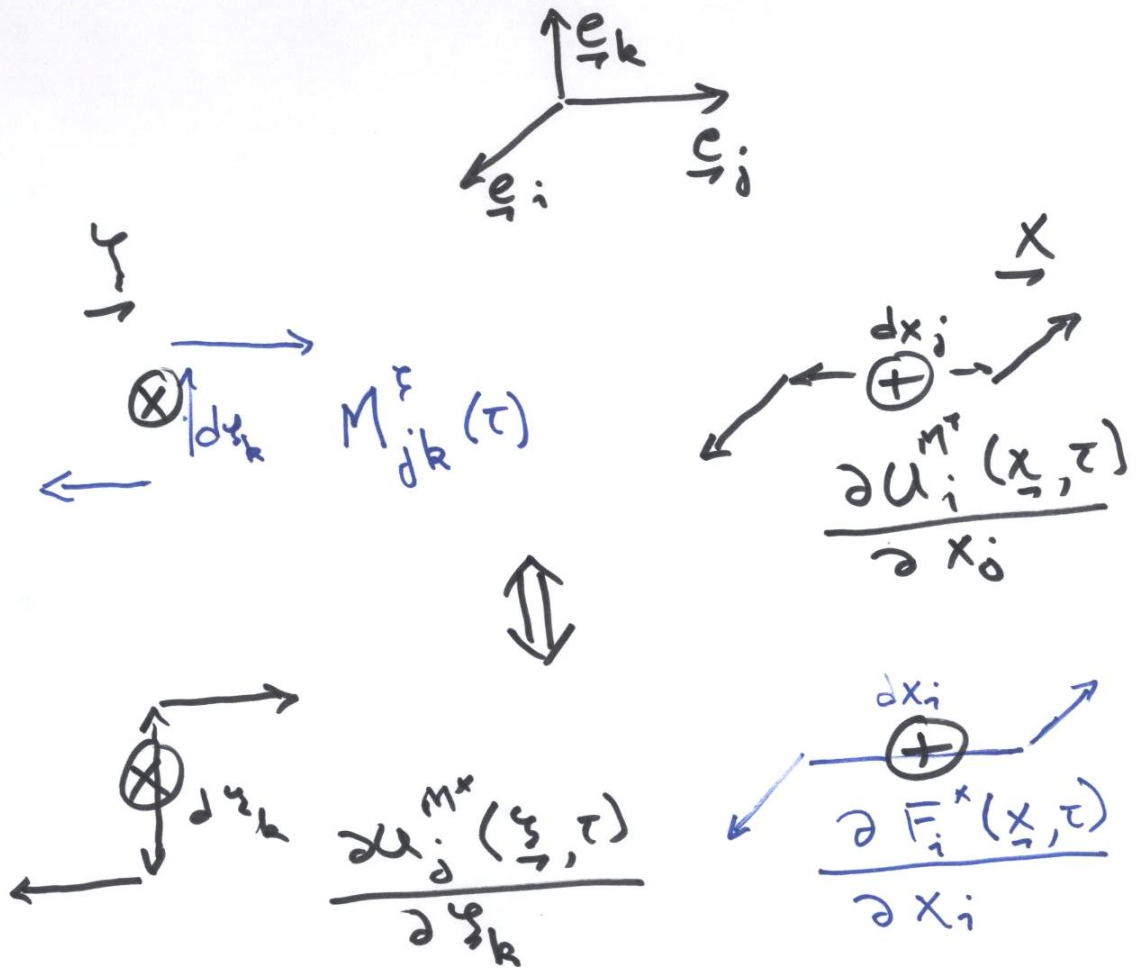 e k
e j
e i
ξ
x
dx j
dξ k
M ξ jk (τ)
∂u i M ξ (x, τ)
∂x j
dx i
dξ k
∂u j M x (ξ, τ)
∂ξ k
∂F i x (x, τ)
∂x i